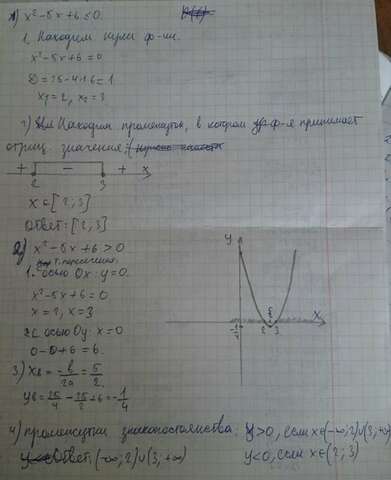 1) x² - 5x + 6 ≤ 0.
1. Находим нули ф-ии.
x² - 5x + 6 = 0
D = 25 - 4·1·6 = 1.
x₁ = 2, x₂ = 3
2) Находим промежуток, в котором ф-я принимает
отриц. значения:
+ − + x
2 3
x ∈ [2; 3]
Ответ: [2; 3]
2) x² - 5x + 6 > 0
1. т. пересечения
с осью Ox: y = 0.
x² - 5x + 6 = 0
x = 2, x = 3
2. с осью Oy: x = 0
0 - 0 + 6 = 6.
3.) xв = -b/2a = 5/2.
yв = 25/4 - 25/2 + 6 = -1/4
y
x
2 5/2 3
-1/4
4) промежутки знакопостоянства: y > 0, если x ∈ (-∞; 2) ∪ (3; +∞)
y < 0, если x ∈ (2; 3)
Ответ: (-∞; 2) ∪ (3; +∞)